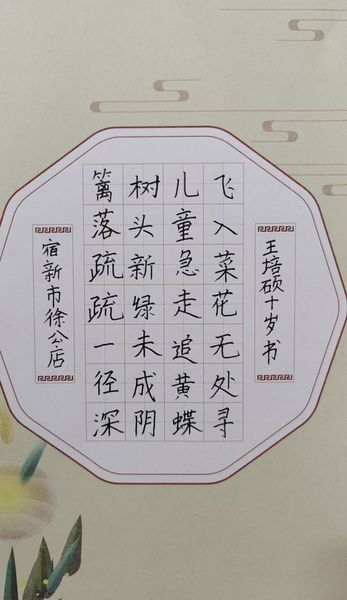 宿新市徐公店
篱落疏疏一径深
树头新绿未成阴
儿童急走追黄蝶
飞入菜花无处寻
王培硕十岁书